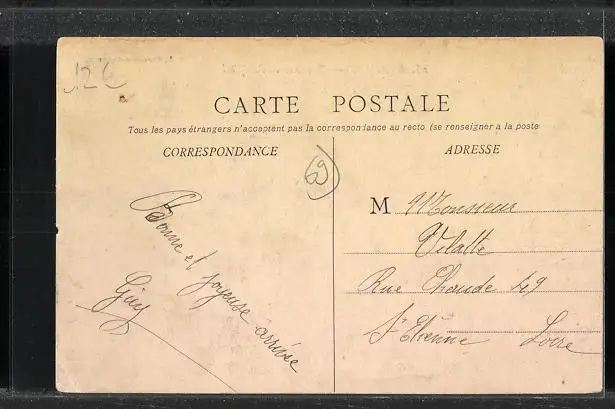 12€
CARTE POSTALE
Tous les pays étrangers n'acceptent pas la correspondance au recto (se renseigner à la poste
CORRESPONDANCE
ADRESSE
69
Bonne et joyeuse arrivée
Guy
M Monsieur
Velatte
Rue Chaude 49
St Etienne Loire